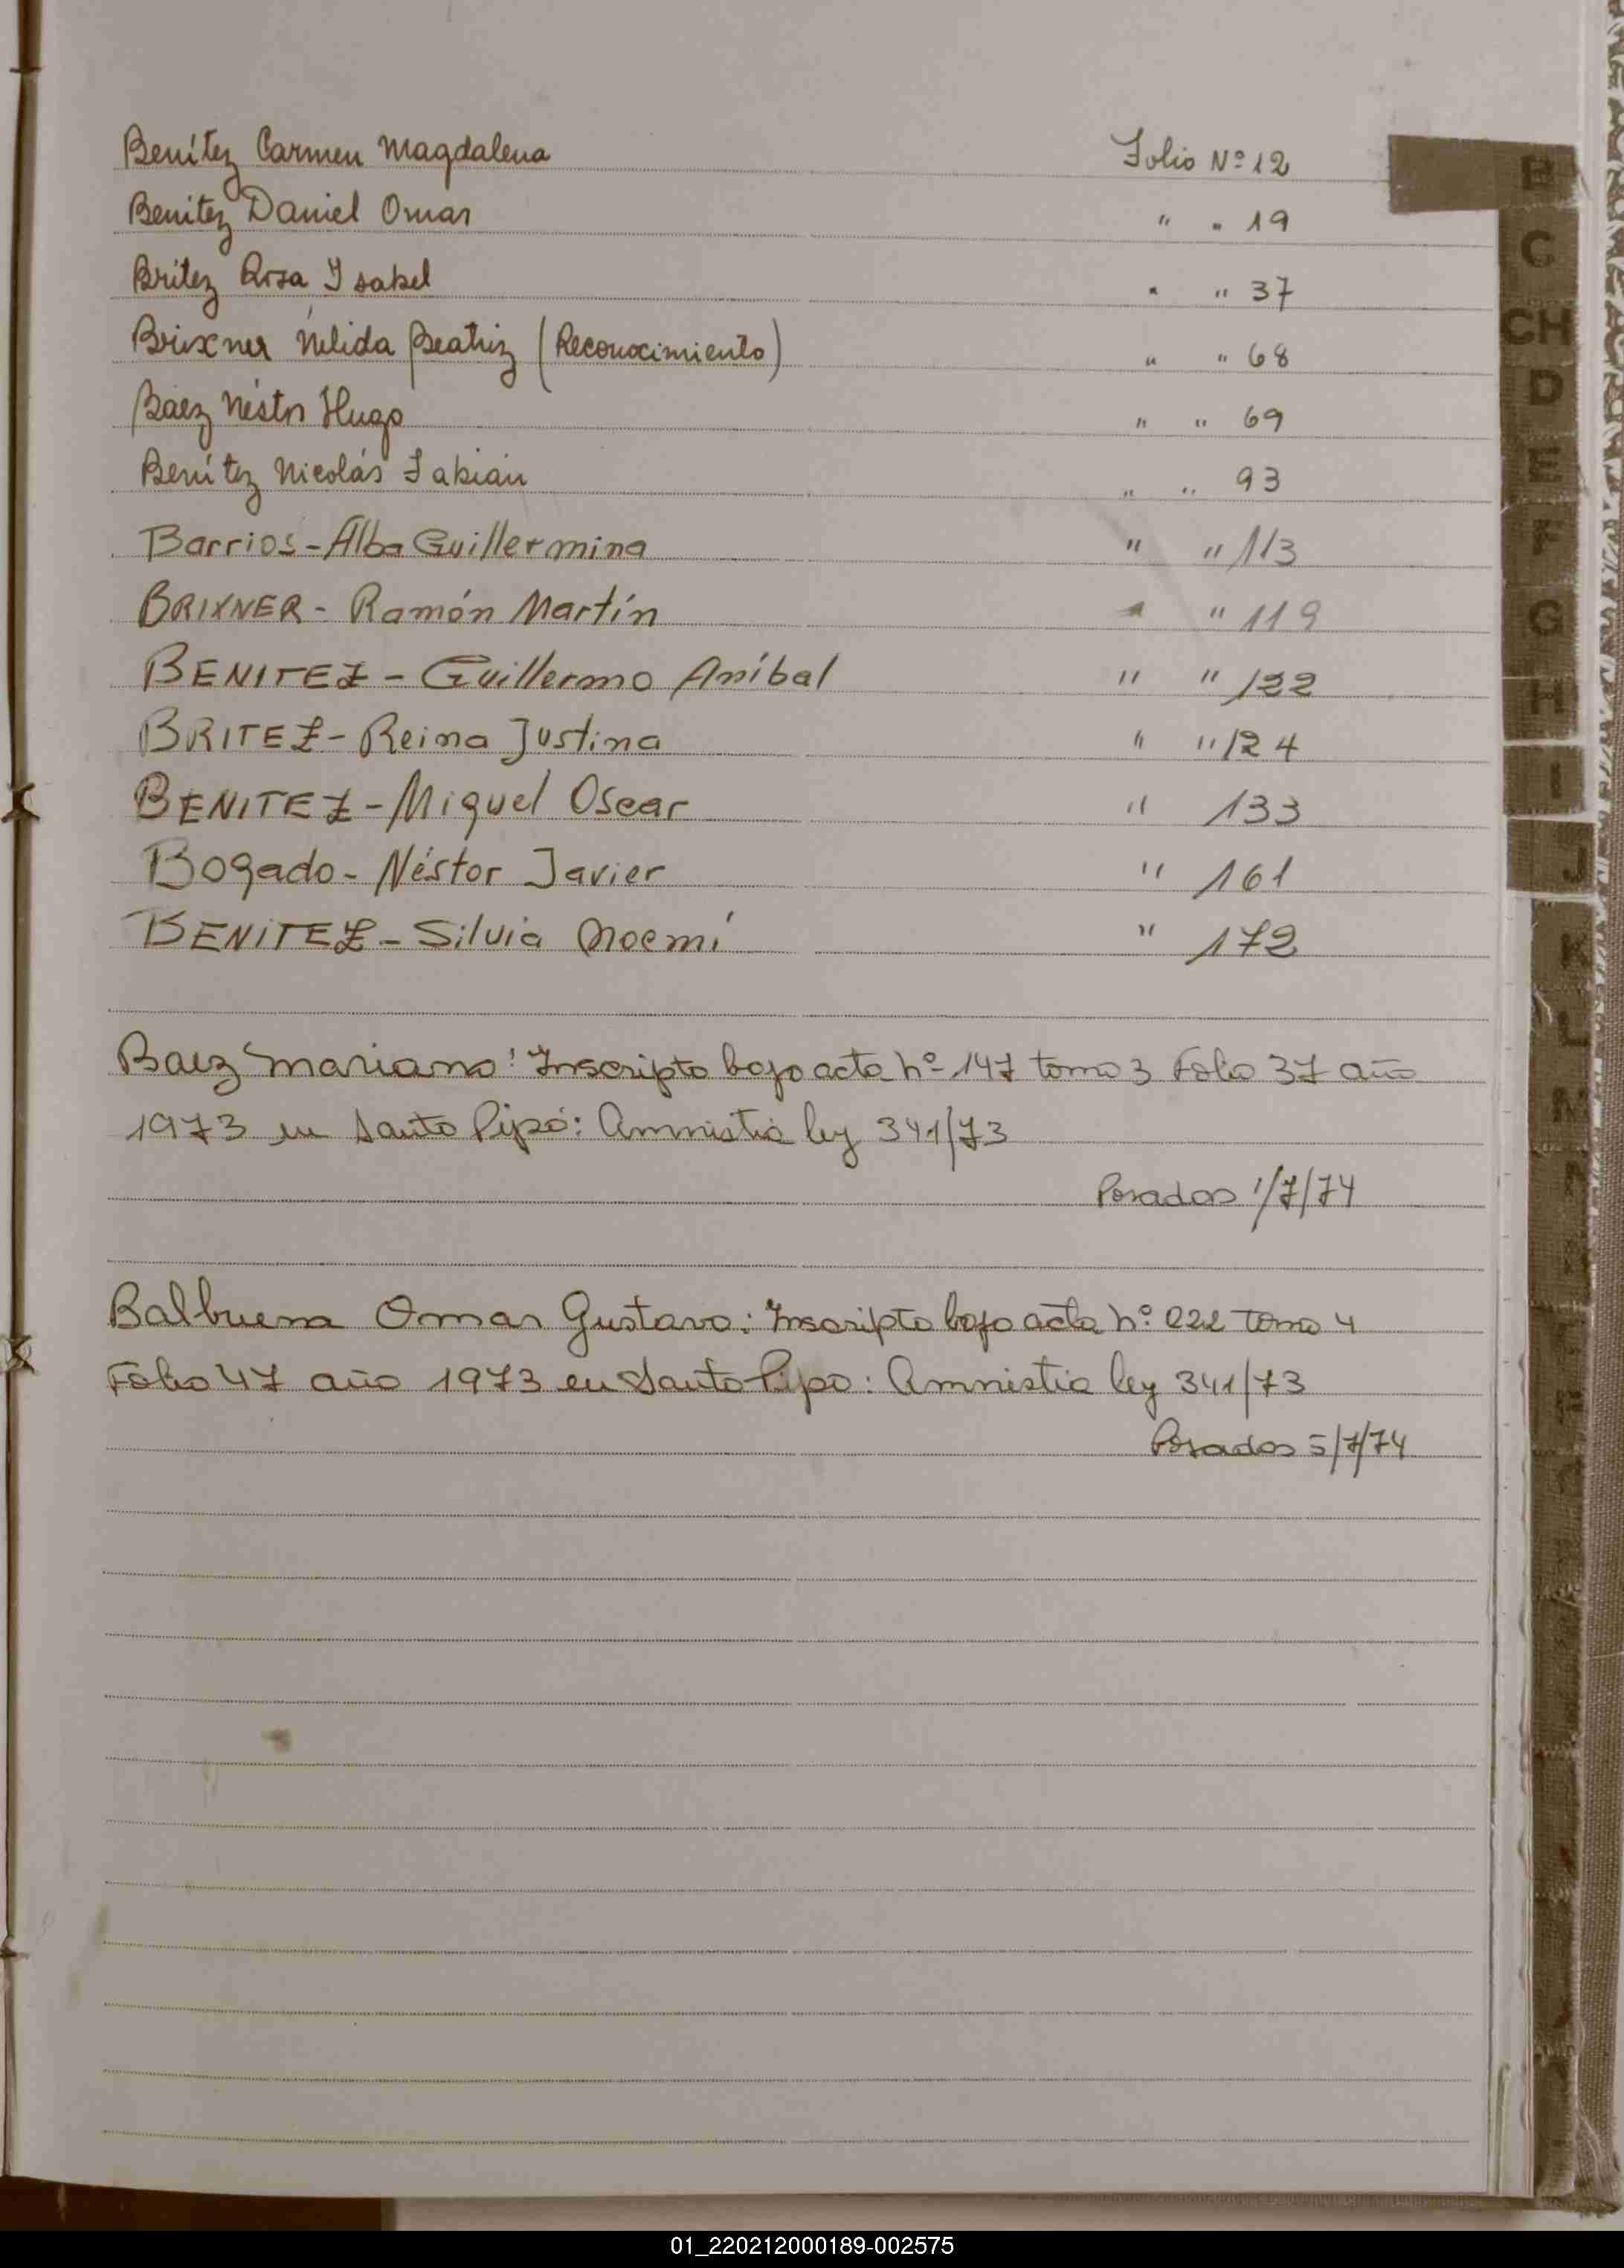 Benítez Carmen Magdalena Folio Nº 12
Benitez Daniel Omar " " 19
Britez Rosa Isabel " " 37
Brixner Nélida Beatriz (Reconocimiento) " " 68
Báez Néstor Hugo " " 69
Benítez Nicolás Fabián " " 93
Barrios - Alba Guillermina " " 113
BRIXNER - Ramón Martín " " 119
BENITEZ - Guillermo Aníbal " " 122
BRITEZ - Reina Justina " " 124
BENITEZ - Miguel Oscar " 133
Bogado - Néstor Javier " 161
BENITEZ - Silvia Noemí " 172
Baez Mariano: Inscripto bajo acta nº 147 tomo 3 Folio 37 año
1973 en Santo Pipó: Amnistia ley 341/73
Posadas 1/7/74
Balbuena Omar Gustavo: Inscripto bajo acta nº 222 Tomo 4
Folio 47 año 1973 en Santo Pipo: Amnistia ley 341/73
Posadas 5/7/74
B
C
CH
D
E
F
G
H
I
J
K
L
M
01_220212000189-002575